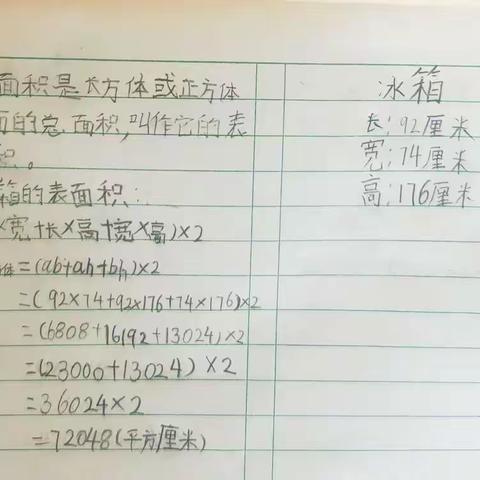 面积是长方体或正方体
面的总面积,叫作它的表
积。
箱的表面积:
×宽+长×高+宽×高)×2
体=(ab+ah+bh)×2
=(92×74+92×176+74×176)×2
=(6808+16192+13024)×2
=(23000+13024)×2
=36024×2
=72048(平方厘米)
冰箱
长:92厘米
宽:74厘米
高:176厘米